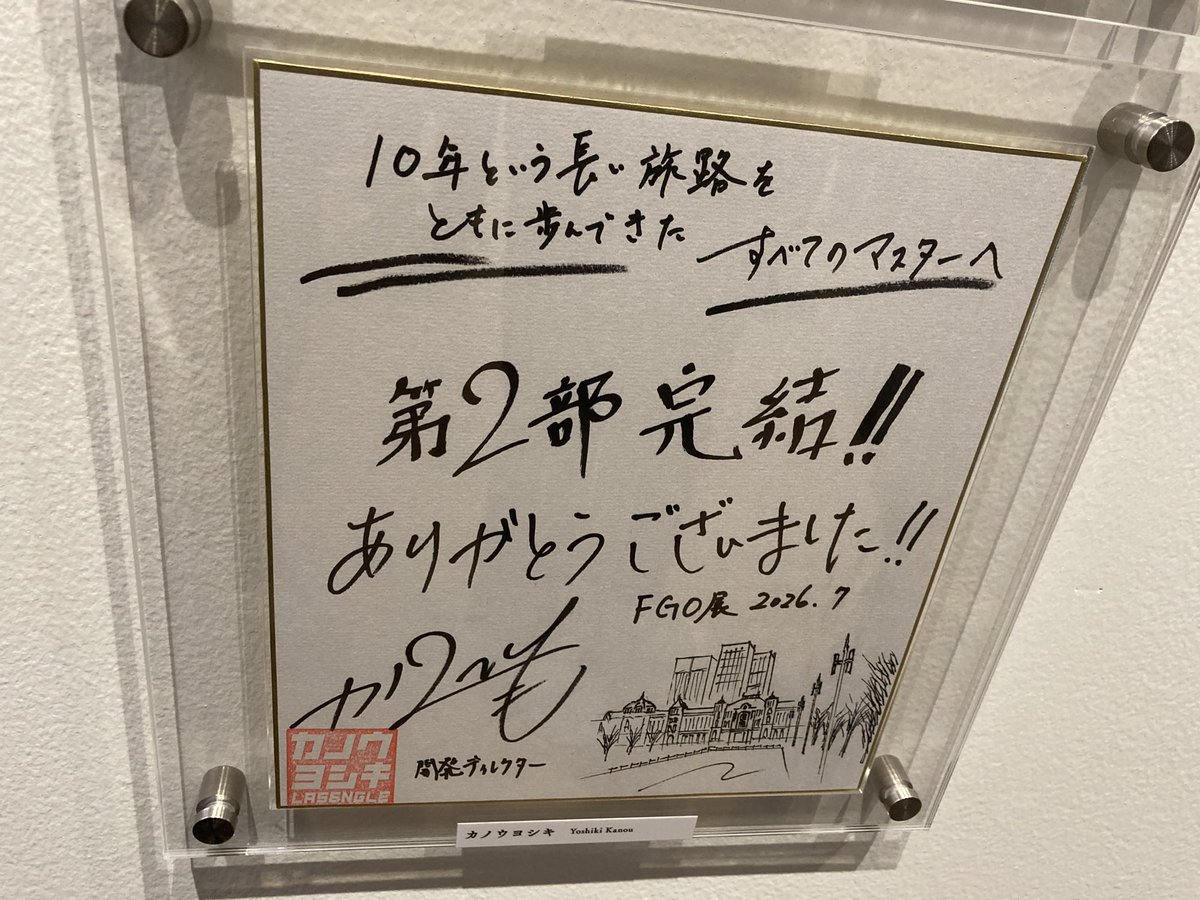 10年という長い旅路を
ともに歩んできた
すべてのマスターへ
第2部完結!!
ありがとうございました!!
FGO展 2026.7
カノウ
ヨシキ
LASENGLE
開発ディレクター
カノウヨシキ Yoshiki Kanou